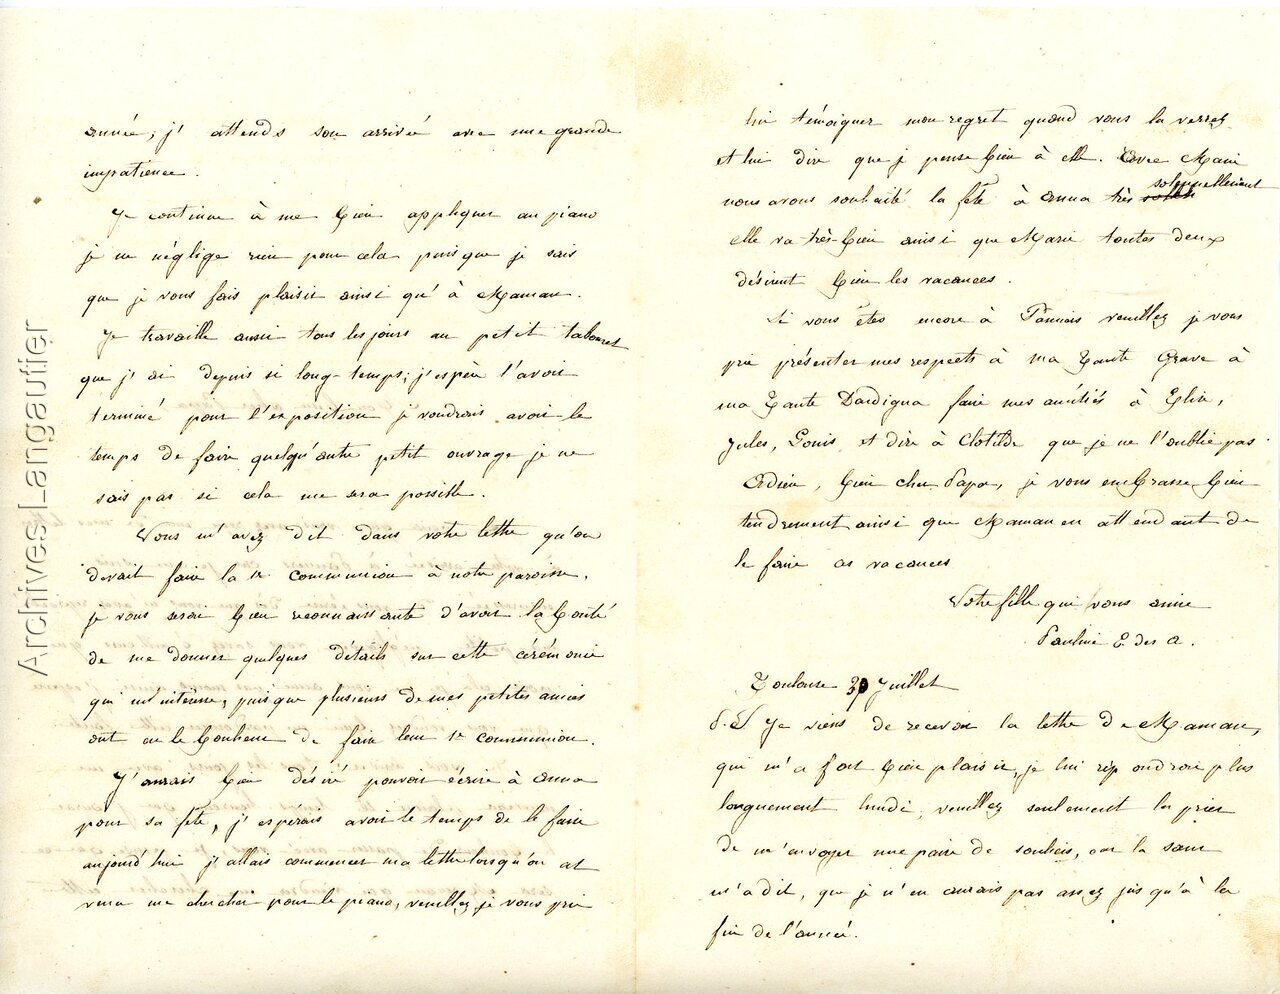 année, j'attends son arrivée avec une grande
impatience.
Je continue à me bien appliquer au piano
je ne néglige rien pour cela puisque je sais
que je vous fais plaisir ainsi qu'à Maman.
Je travaille aussi tous les jours au petit tabouret
que j'ai depuis si long-temps; j'espère l'avoir
terminé pour l'exposition je voudrais avoir le
temps de faire quelqu'autre petit ouvrage je ne
sais pas si cela me sera possible.
Vous m'avez dit dans votre lettre qu'on
devait faire la 1re communion à notre paroisse,
je vous serai bien reconnaissante d'avoir la bonté
de me donner quelques détails sur cette cérémonie
qui m'intéresse, puisque plusieurs de mes petites amies
ont eu le bonheur de faire leur 1re communion.
J'aurais bien désiré pouvoir écrire à Anna
pour sa fête, j'espérais avoir le temps de le faire
aujourd'hui j'allais commencer ma lettre lorsqu'on est
venu me chercher pour le piano, veuillez je vous prie
lui témoigner mon regret quand vous la verrez
et lui dire que je pense bien à elle. Avec
nous avons souhaité la fête à Anna très solennellement
elle va très-bien ainsi que Marie toutes deux
désirent bien les vacances.
Si vous êtes encore à veuillez je vous
prie présenter mes respects à ma Tante Grave à
ma Tante Dardigna faire mes amitiés à Elise,
Jules, Louis et dire à Clotilde que je ne l'oublie pas
Adieu, bien cher Papa, je vous embrasse bien
tendrement ainsi que Maman en attendant de
le faire as vacances
Votre fille qui vous aime
Pauline E. des A.
Toulouse 30 Juillet
P.S Je viens de recevoir la lettre de Maman,
qui m'a fort bien plaisir, je lui répondrai plus
longuement lundi, veuillez seulement la prier
de m'envoyer une paire de souliers, car la sœur
m'a dit, que je n'en aurais pas assez jusqu'à la
fin de l'année.
Archives Langautier